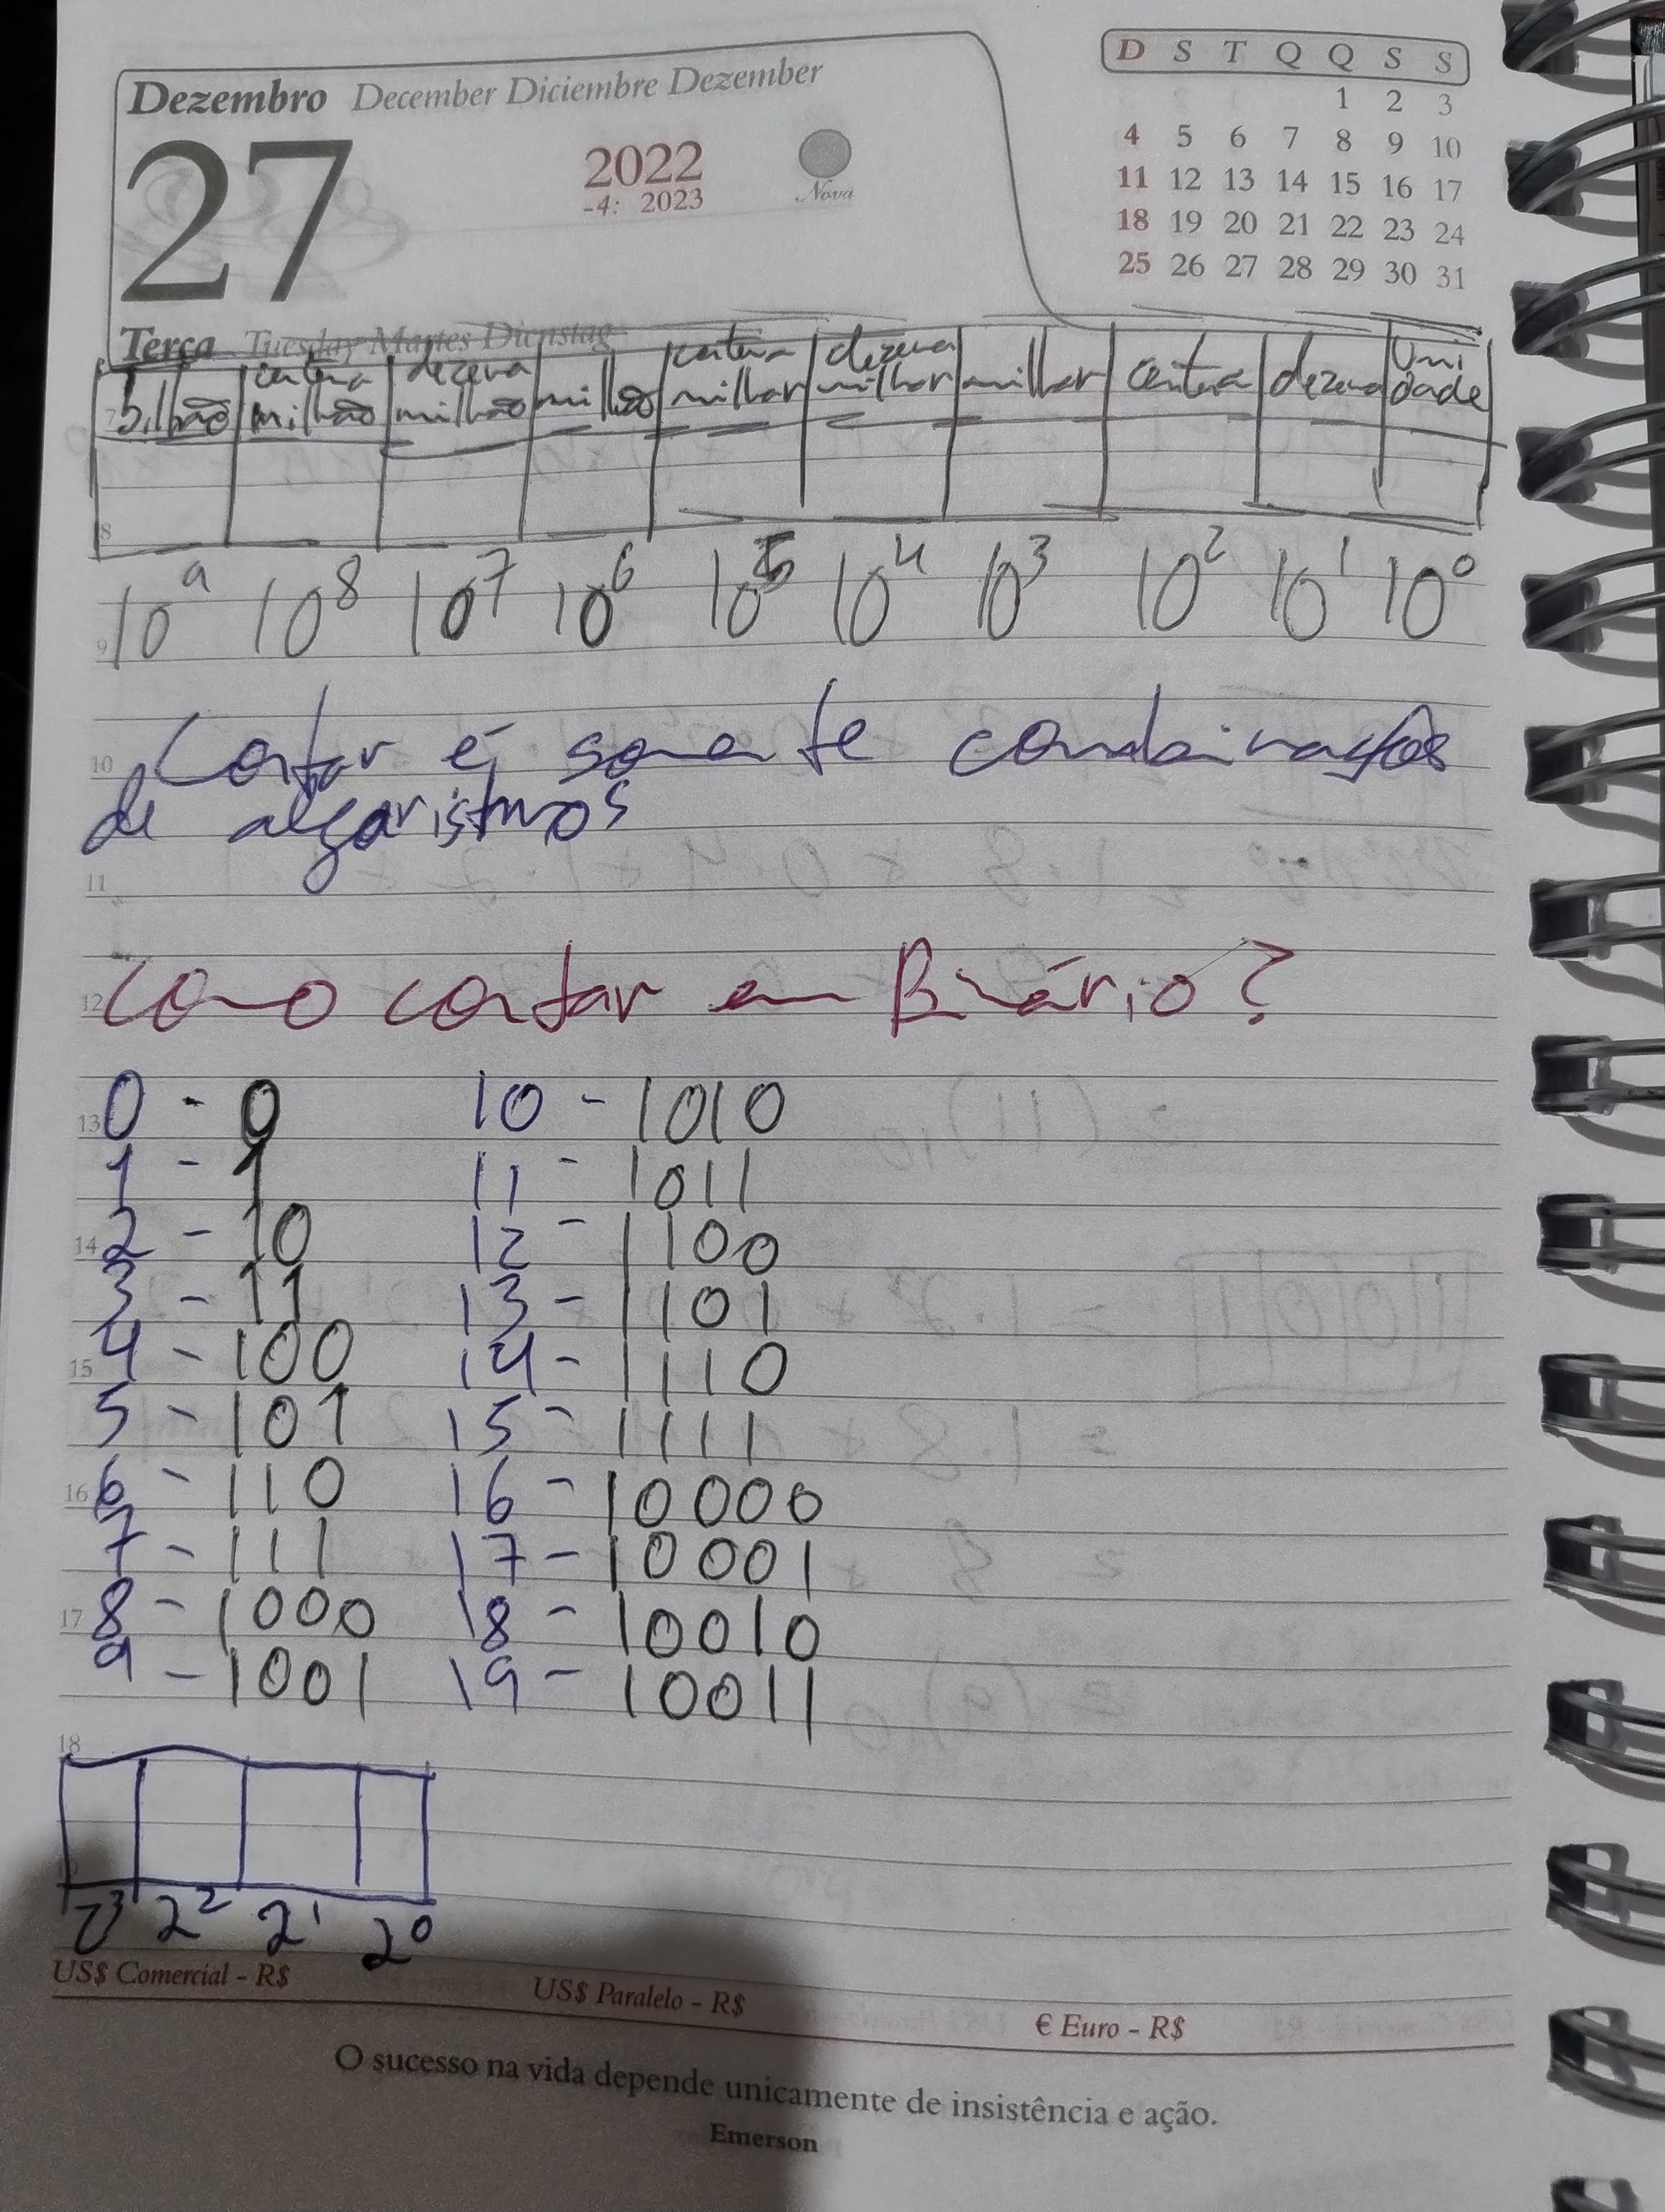 Dezembro December Diciembre Dezember
27
2022
-4: 2023
Nova
D S T Q Q S S
1 2 3
4 5 6 7 8 9 10
11 12 13 14 15 16 17
18 19 20 21 22 23 24
25 26 27 28 29 30 31
Terça Tuesday Martes Dienstag
bilhão centena milhão dezena milhão milhão centena milhar dezena milhar milhar centena dezena Unidade
7
8
10⁹ 10⁸ 10⁷ 10⁶ 10⁵ 10⁴ 10³ 10² 10¹ 10⁰
9
10 Contar é somente combinações
de algarismos
11
12 Como contar em Binário?
13 0 - 0 10 - 1010
1 - 1 11 - 1011
14 2 - 10 12 - 1100
3 - 11 13 - 1101
15 4 - 100 14 - 1110
5 - 101 15 - 1111
16 6 - 110 16 - 10000
7 - 111 17 - 10001
17 8 - 1000 18 - 10010
9 - 1001 19 - 10011
18
19
2³ 2² 2¹ 2⁰
US$ Comercial - R$ US$ Paralelo - R$ € Euro - R$
O sucesso na vida depende unicamente de insistência e ação.
Emerson